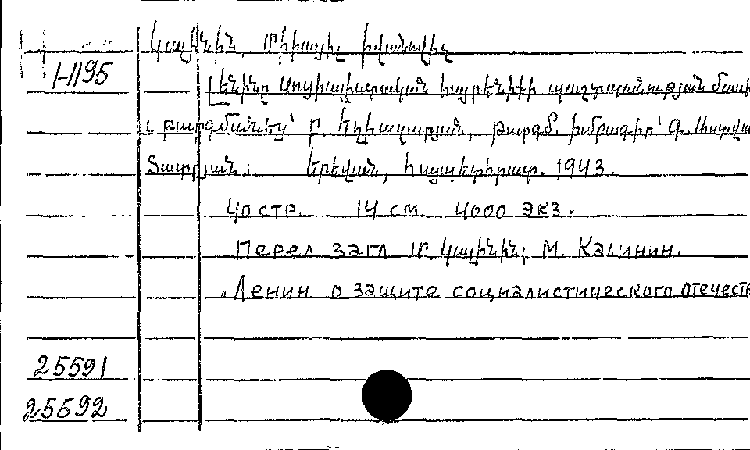 Կալինին, Միխայիլ Իվանովիչ
1-1195
Լենինը սոցիալիստական հայրենիքի պաշտպանության մասին
թարգմանեց՝ Ր. Եղիազարյան, թարգմ. խմբագիր՝ Գ.
Տատրյան. Երեվան, Հայպետհրատ. 1943.
40 стр. 14 см. 4000 экз.
Перед загл. Մ. Կալինին; М. Калинин.
Ленин о защите социалистического отечеств
25591
25592